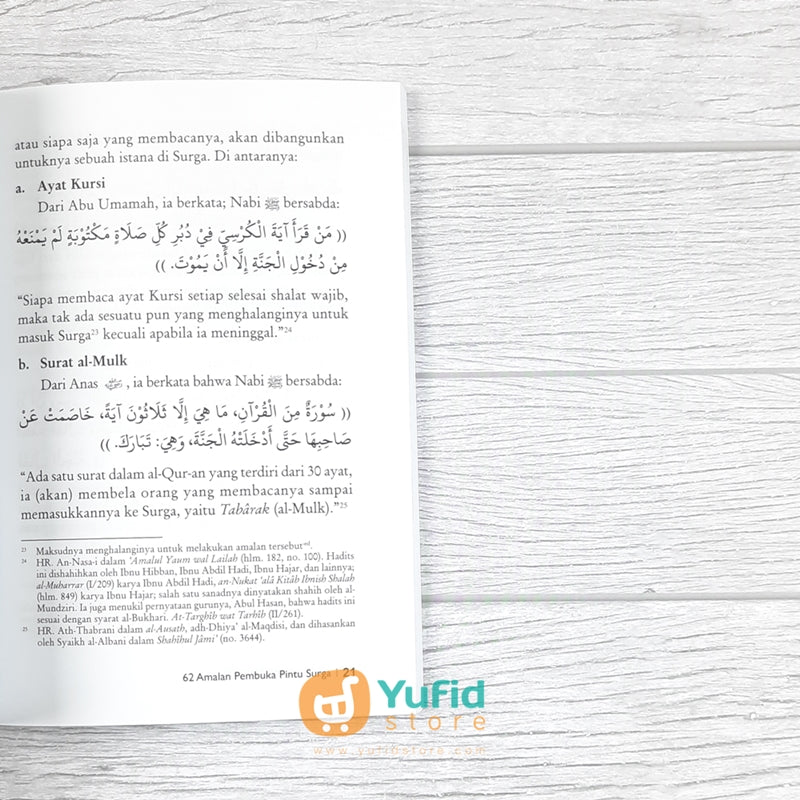 atau siapa saja yang membacanya, akan dibangunkan
untuknya sebuah istana di Surga. Di antaranya:
a. Ayat Kursi
Dari Abu Umamah, ia berkata; Nabi ﷺ bersabda:
(( مَنْ قَرَأَ آيَةَ الْكُرْسِيِّ فِيْ دُبُرِ كُلِّ صَلَاةٍ مَكْتُوْبَةٍ لَمْ يَمْنَعْهُ
مِنْ دُخُوْلِ الْجَنَّةِ إِلَّا أَنْ يَمُوْتَ. ))
“Siapa membaca ayat Kursi setiap selesai shalat wajib,
maka tak ada sesuatu pun yang menghalanginya untuk
masuk Surga²³ kecuali apabila ia meninggal.”²⁴
b. Surat al-Mulk
Dari Anas , ia berkata bahwa Nabi ﷺ bersabda:
(( سُوْرَةٌ مِنَ الْقُرْآنِ، مَا هِيَ إِلَّا ثَلَاثُوْنَ آيَةً، خَاصَمَتْ عَنْ
صَاحِبِهَا حَتَّى أَدْخَلَتْهُ الْجَنَّةَ، وَهِيَ: تَبَارَكَ. ))
“Ada satu surat dalam al-Qur-an yang terdiri dari 30 ayat,
ia (akan) membela orang yang membacanya sampai
memasukkannya ke Surga, yaitu Tabârak (al-Mulk).”²⁵
²³ Maksudnya menghalanginya untuk melakukan amalan tersebut
²⁴ HR. An-Nasa-i dalam ‘Amalul Yaum wal Lailah (hlm. 182, no. 100). Hadits
ini dishahihkan oleh Ibnu Hibban, Ibnu Abdil Hadi, Ibnu Hajar, dan lainnya;
al-Muharrar (I/209) karya Ibnu Abdil Hadi, an-Nukat ‘alâ Kitâb Ibnish Shalah
(hlm. 849) karya Ibnu Hajar; salah satu sanadnya dinyatakan shahih oleh al-
Mundziri. Ia juga menukil pernyataan gurunya, Abul Hasan, bahwa hadits ini
sesuai dengan syarat al-Bukhari. At-Targhîb wat Tarhîb (II/261).
²⁵ HR. Ath-Thabrani dalam al-Ausath, adh-Dhiya’ al-Maqdisi, dan dihasankan
oleh Syaikh al-Albani dalam Shahîhul Jâmi’ (no. 3644).
62 Amalan Pembuka Pintu Surga | 21
Yufid
store
www.yufidstore.com